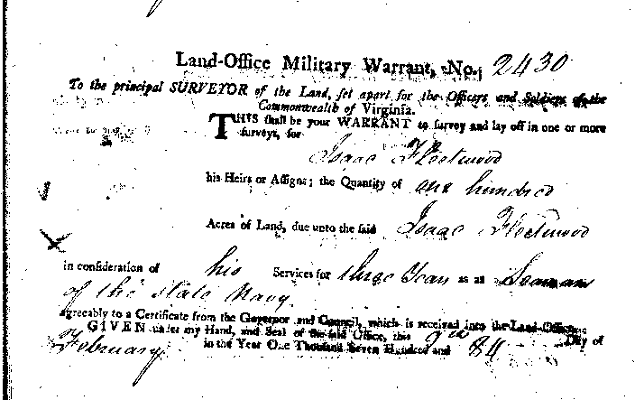 Land-Office Military Warrant, No. 2430
To the principal SURVEYOR of the Land, set apart for the Officers and Soldiers of the
Commonwealth of Virginia.
THIS shall be your WARRANT to survey and lay off in one or more
surveys, for
Isaac Fleetwood
his Heirs or Assigns; the Quantity of one hundred
Acres of Land, due unto the said Isaac Fleetwood
in consideration of his Services for three Years as a Seaman
of the State Navy.
agreeably to a Certificate from the Governor and Council, which is received into the Land-Office.
GIVEN under my Hand, and Seal of the said Office, this Day of
February in the Year One Thousand Seven Hundred and 84